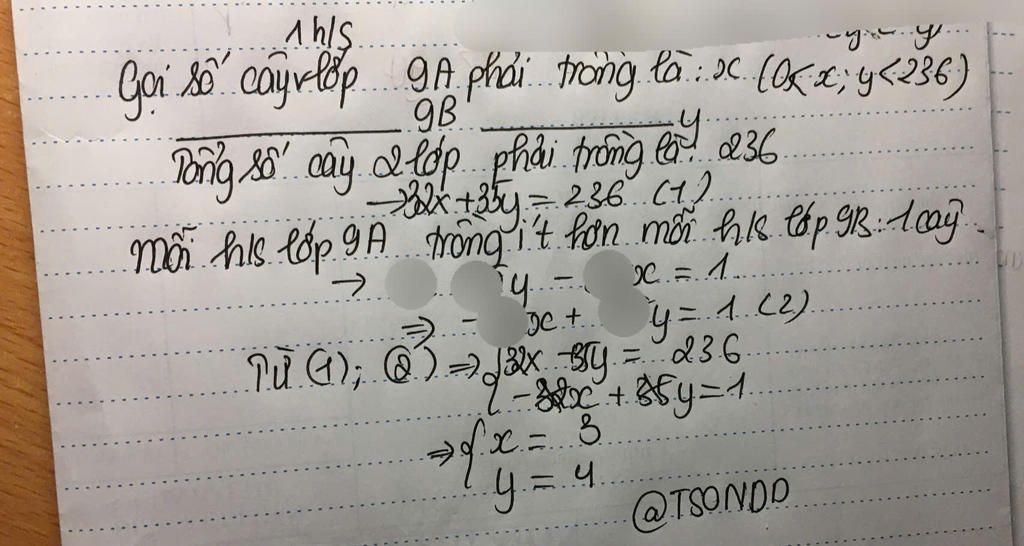 1 h/s
Gọi số cây lớp 9A phải trồng là: x (0<x; y<236)
9B y
Tổng số cây 2 lớp phải trồng là: 236
→ 32x + 35y = 236 (1)
Mỗi h/s lớp 9A trồng ít hơn mỗi h/s lớp 9B: 1 cây.
→ y - x = 1
⇒ - x + y = 1 (2)
Từ (1); (2) ⇒ { 32x - 35y = 236
- x + y = 1
⇒ { x = 3
y = 4
@TSONDD